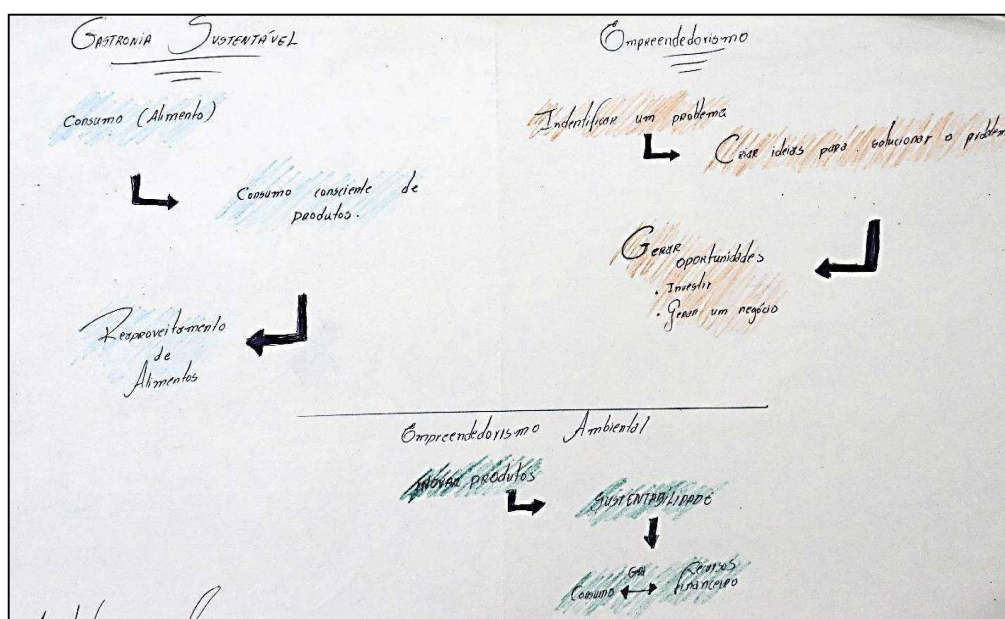 Gastronia Sustentável
Consumo (Alimento)
Consumo consciente de
produtos.
Reaproveitamento
de
Alimentos
Empreendedorismo
Indentificar um problema
Criar ideias para solucionar o problem
Gerar
oportunidades
. Investir
. Gerar um negócio
Empreendedorismo Ambiental
Inovar produtos
Sustentabilidade
Consumo
Recursos
financeiro